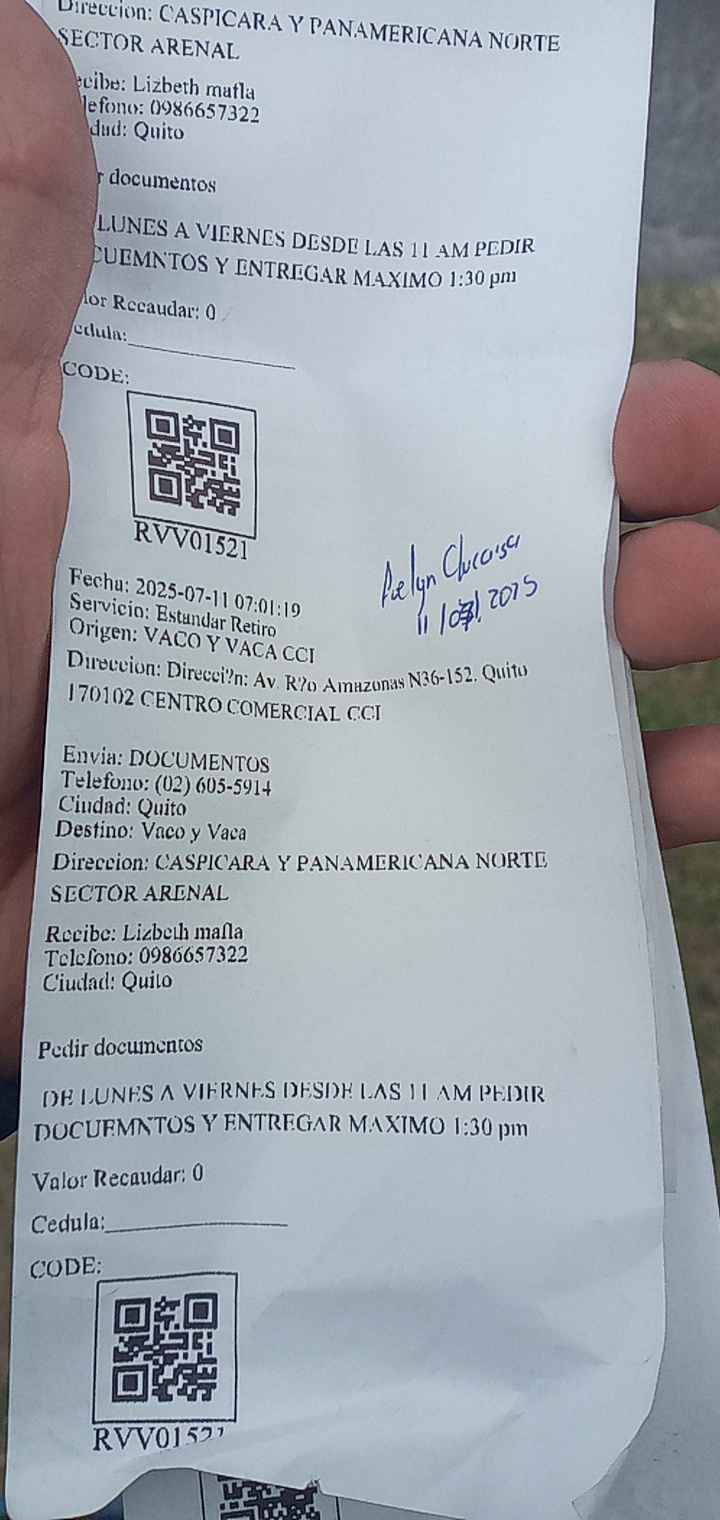 Direccion: CASPICARA Y PANAMERICANA NORTE
SECTOR ARENAL
ecibe: Lizbeth mafla
lefono: 0986657322
dad: Quito
r documentos
LUNES A VIERNES DESDE LAS 11 AM PEDIR
CUEMNTOS Y ENTREGAR MAXIMO 1:30 pm
lor Recaudar: 0
edula:
CODE:
RVV01521
Fecha: 2025-07-11 07:01:19
Servicio: Estandar Retiro
Origen: VACO Y VACA CCI
Direccion: Direcci?n: Av. R?o Amazonas N36-152, Quito
170102 CENTRO COMERCIAL CCI
11/07/2025
Envia: DOCUMENTOS
Telefono: (02) 605-5914
Ciudad: Quito
Destino: Vaco y Vaca
Direccion: CASPICARA Y PANAMERICANA NORTE
SECTOR ARENAL
Recibe: Lizbeth mafla
Telefono: 0986657322
Ciudad: Quito
Pedir documentos
DE LUNES A VIERNES DESDE LAS 11 AM PEDIR
DOCUEMNTOS Y ENTREGAR MAXIMO 1:30 pm
Valor Recaudar: 0
Cedula:
CODE:
RVV01521